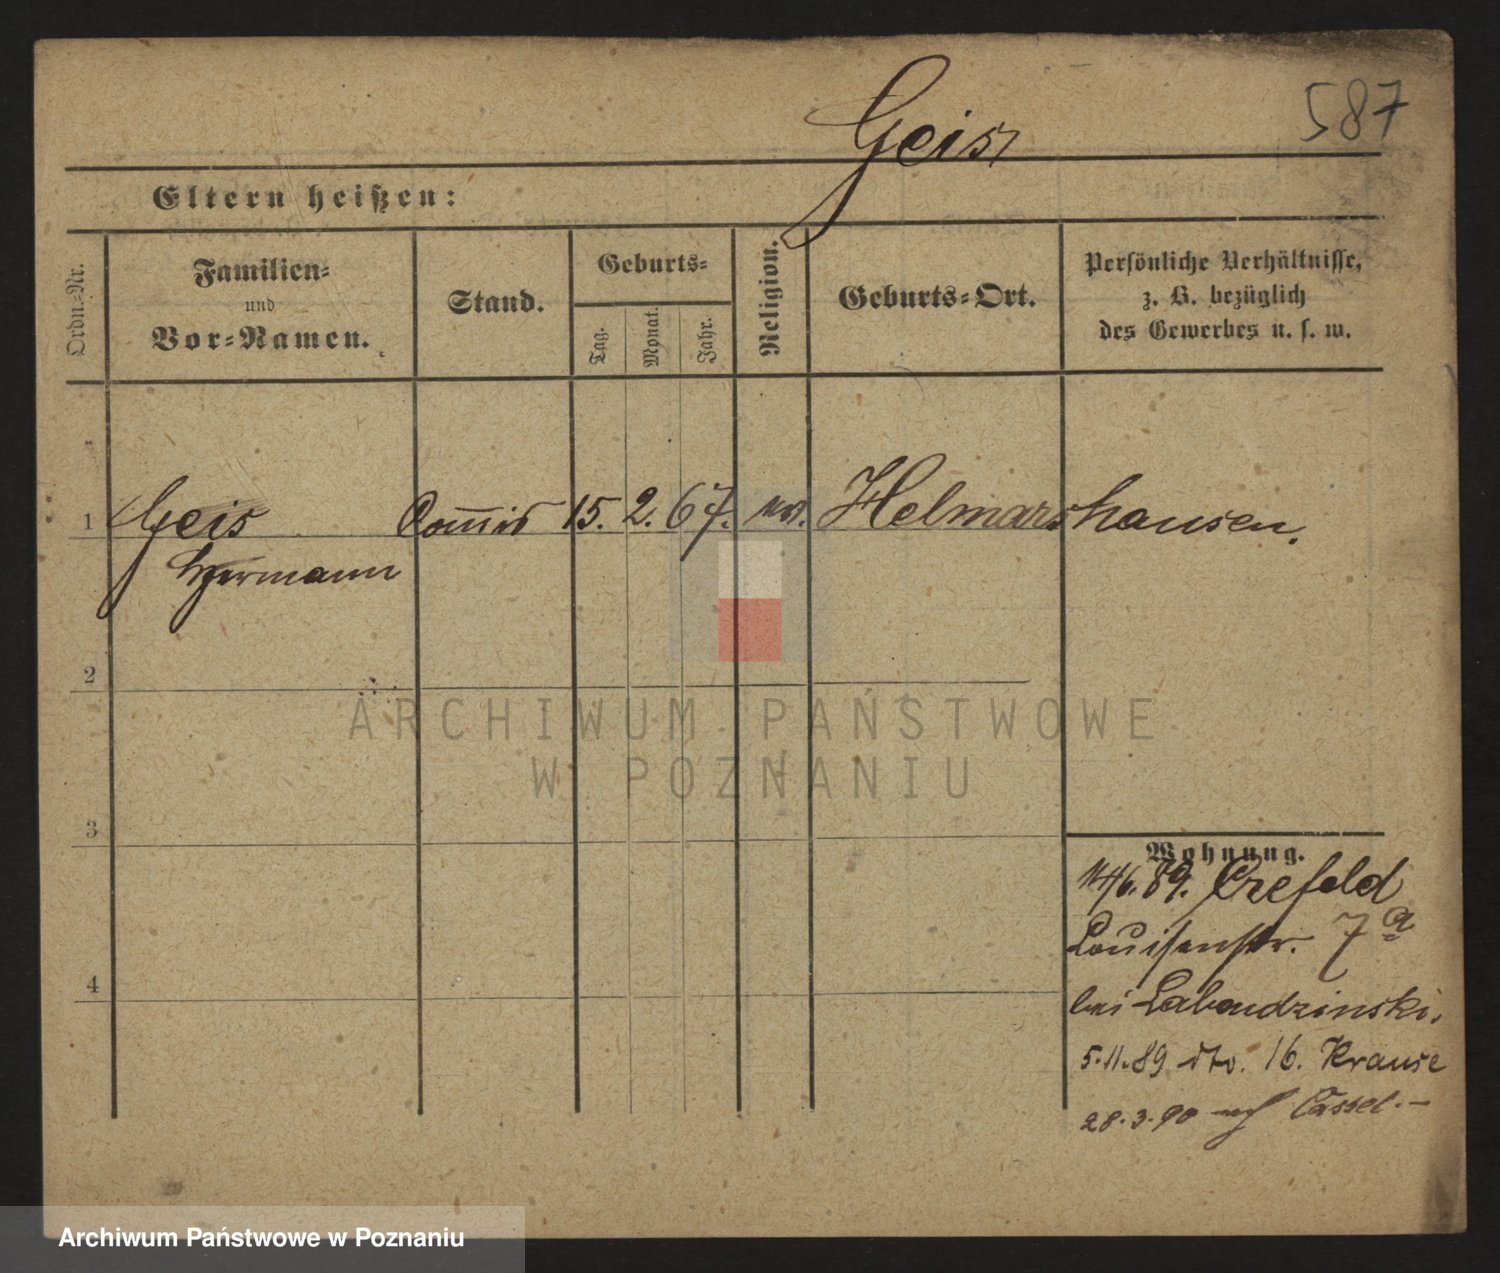 587
Geis
Eltern heißen:
Ordn.-Nr.
Familien-
und
Vor-Namen.
Stand.
Geburts-
Tag.
Monat.
Jahr.
Religion.
Geburts-Ort.
Persönliche Verhältnisse,
z. B. bezüglich
des Gewerbes u. s. w.
1 Geis Commis 15. 2. 67. Helmarshausen.
Hermann
2
ARCHIWUM PAŃSTWOWE
W POZNANIU
3
Wohnung.
14/6. 89. Crefeld
Louisenstr. 7a
bei Labendzinski.
4
5.11.89 dto. 16. Krause
28.3.90 nach Cassel.-
Archiwum Państwowe w Poznaniu